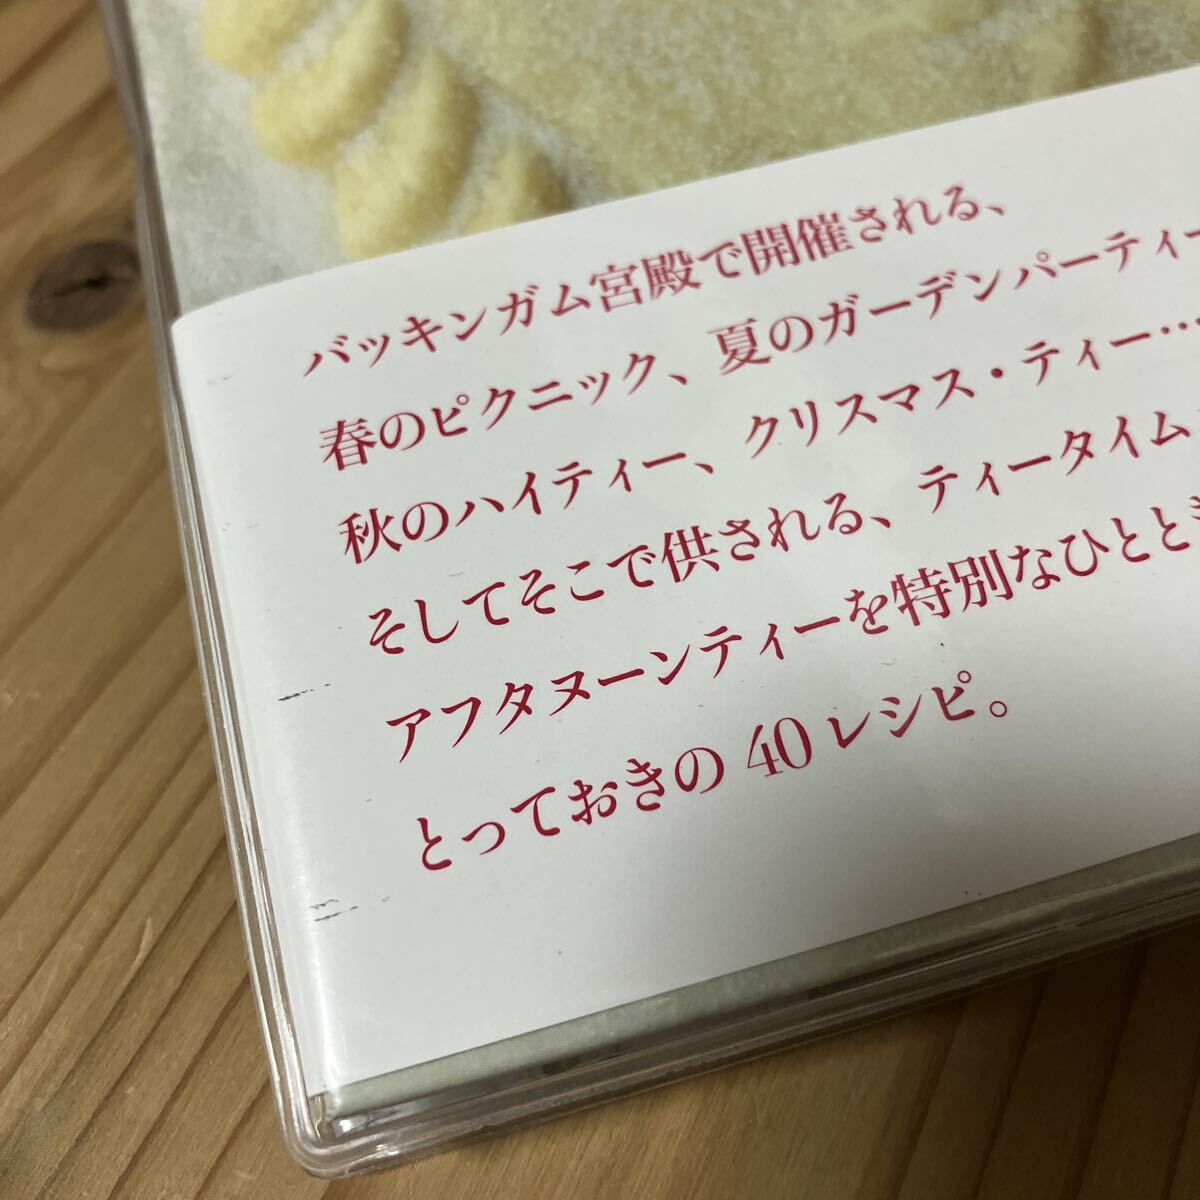 バッキンガム宮殿で開催される、
春のピクニック、夏のガーデンパーティー
秋のハイティー、クリスマス・ティー…
そしてそこで供される、ティータイム
アフタヌーンティーを特別なひととき
とっておきの40レシピ。